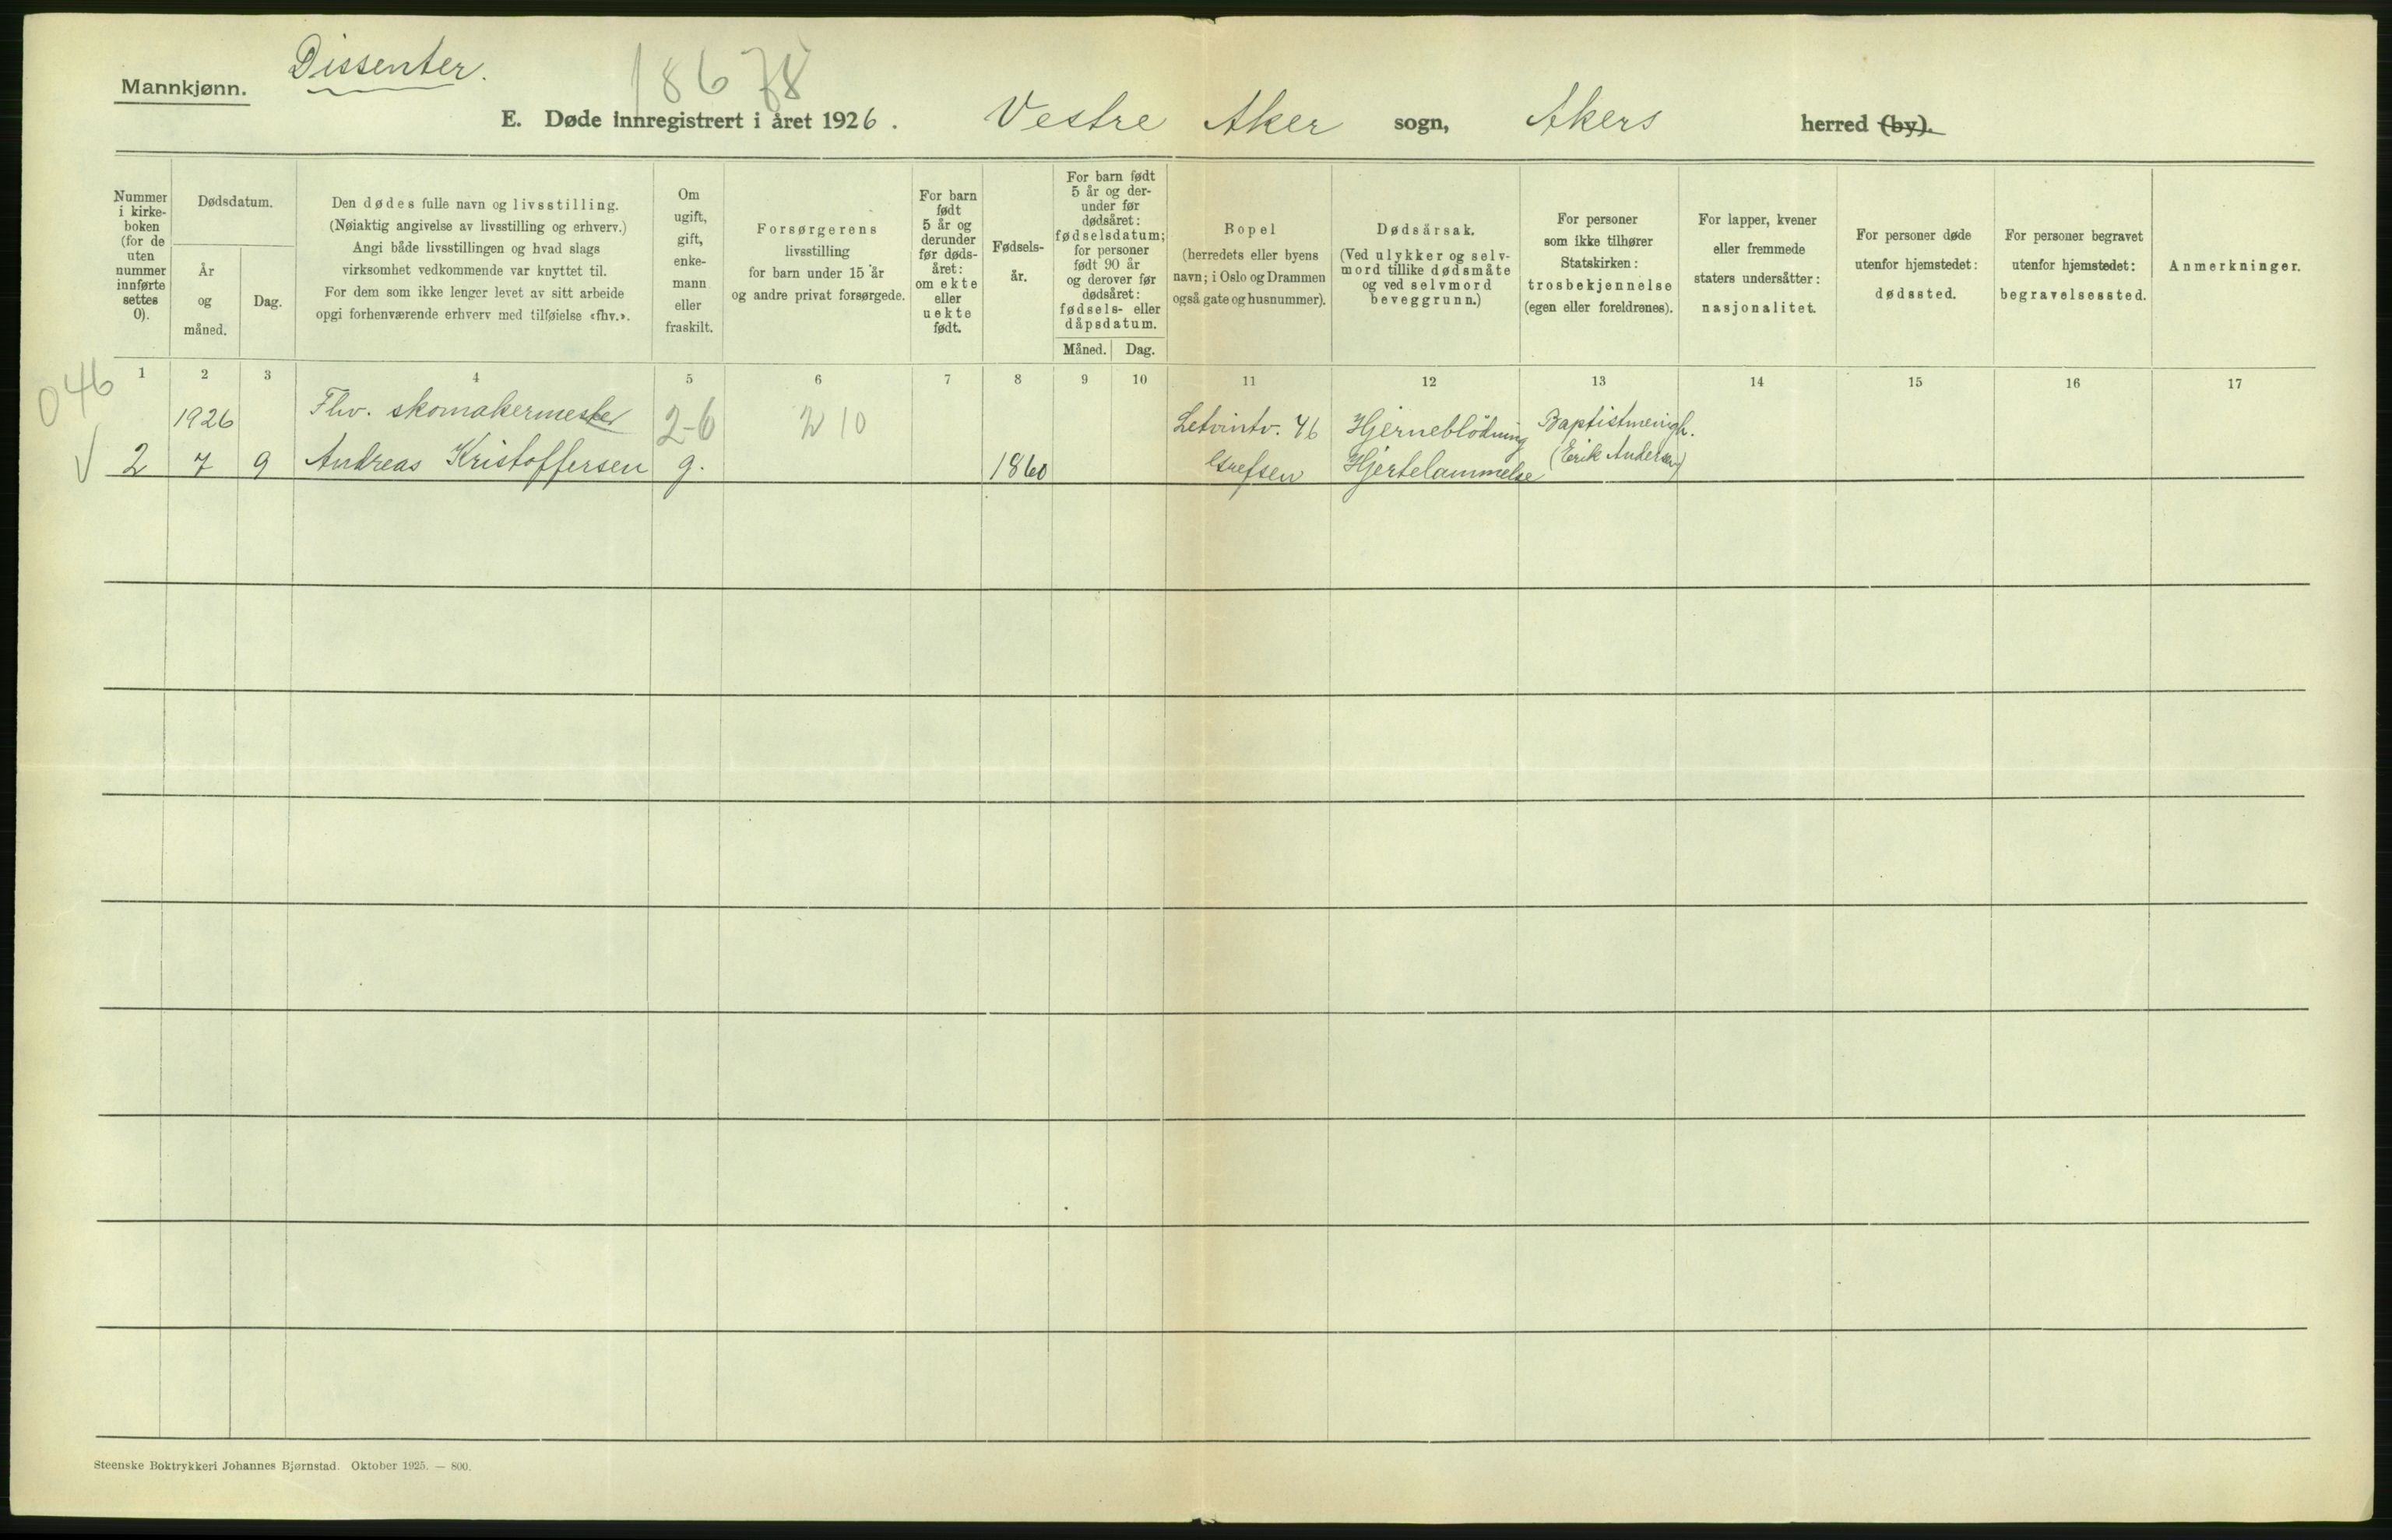 Mannkjønn.
Dissenter.
18678
E. Døde innregistrert i året 1926. Vestre Aker sogn, Akers herred (by).
Nummer
i kirke-
boken
(for de
uten
nummer
innførte
settes
0).
Dødsdatum.
År
og
måned.
Dag.
Den dødes fulle navn og livsstilling.
(Nøiaktig angivelse av livsstilling og erhverv.)
Angi både livsstillingen og hvad slags
virksomhet vedkommende var knyttet til.
For dem som ikke lenger levet av sitt arbeide
opgi forhenværende erhverv med tilføielse «fhv.».
Om
ugift,
gift,
enke-
mann
eller
fraskilt.
Forsørgerens
livsstilling
for barn under 15 år
og andre privat forsørgede.
For barn
født
5 år og
derunder
før døds-
året:
om ekte
eller
uekte
født.
Fødsels-
år.
For barn født
5 år og der-
under før
dødsåret:
fødselsdatum;
for personer
født 90 år
og derover før
dødsåret:
fødsels- eller
dåpsdatum.
Måned. Dag.
Bopel
(herredets eller byens
navn; i Oslo og Drammen
også gate og husnummer).
Dødsårsak.
(Ved ulykker og selv-
mord tillike dødsmåte
og ved selvmord
beveggrunn.)
For personer
som ikke tilhører
Statskirken:
trosbekjennelse
(egen eller foreldrenes).
For lapper, kvener
eller fremmede
staters undersåtter:
nasjonalitet.
For personer døde
utenfor hjemstedet:
dødssted.
For personer begravet
utenfor hjemstedet:
begravelsessted.
Anmerkninger.
1 2 3 4 5 6 7 8 9 10 11 12 13 14 15 16 17
046
1926 Fhv. skomakermester 2-6 210 Letvintv. 46 Hjerneblödning Baptistmenigh.
2 7 9 Andreas Kristoffersen g. 1860 Grefsen Hjertelammelse (Erik Andersen)
Steenske Boktrykkeri Johannes Bjørnstad. Oktober 1925. — 800.